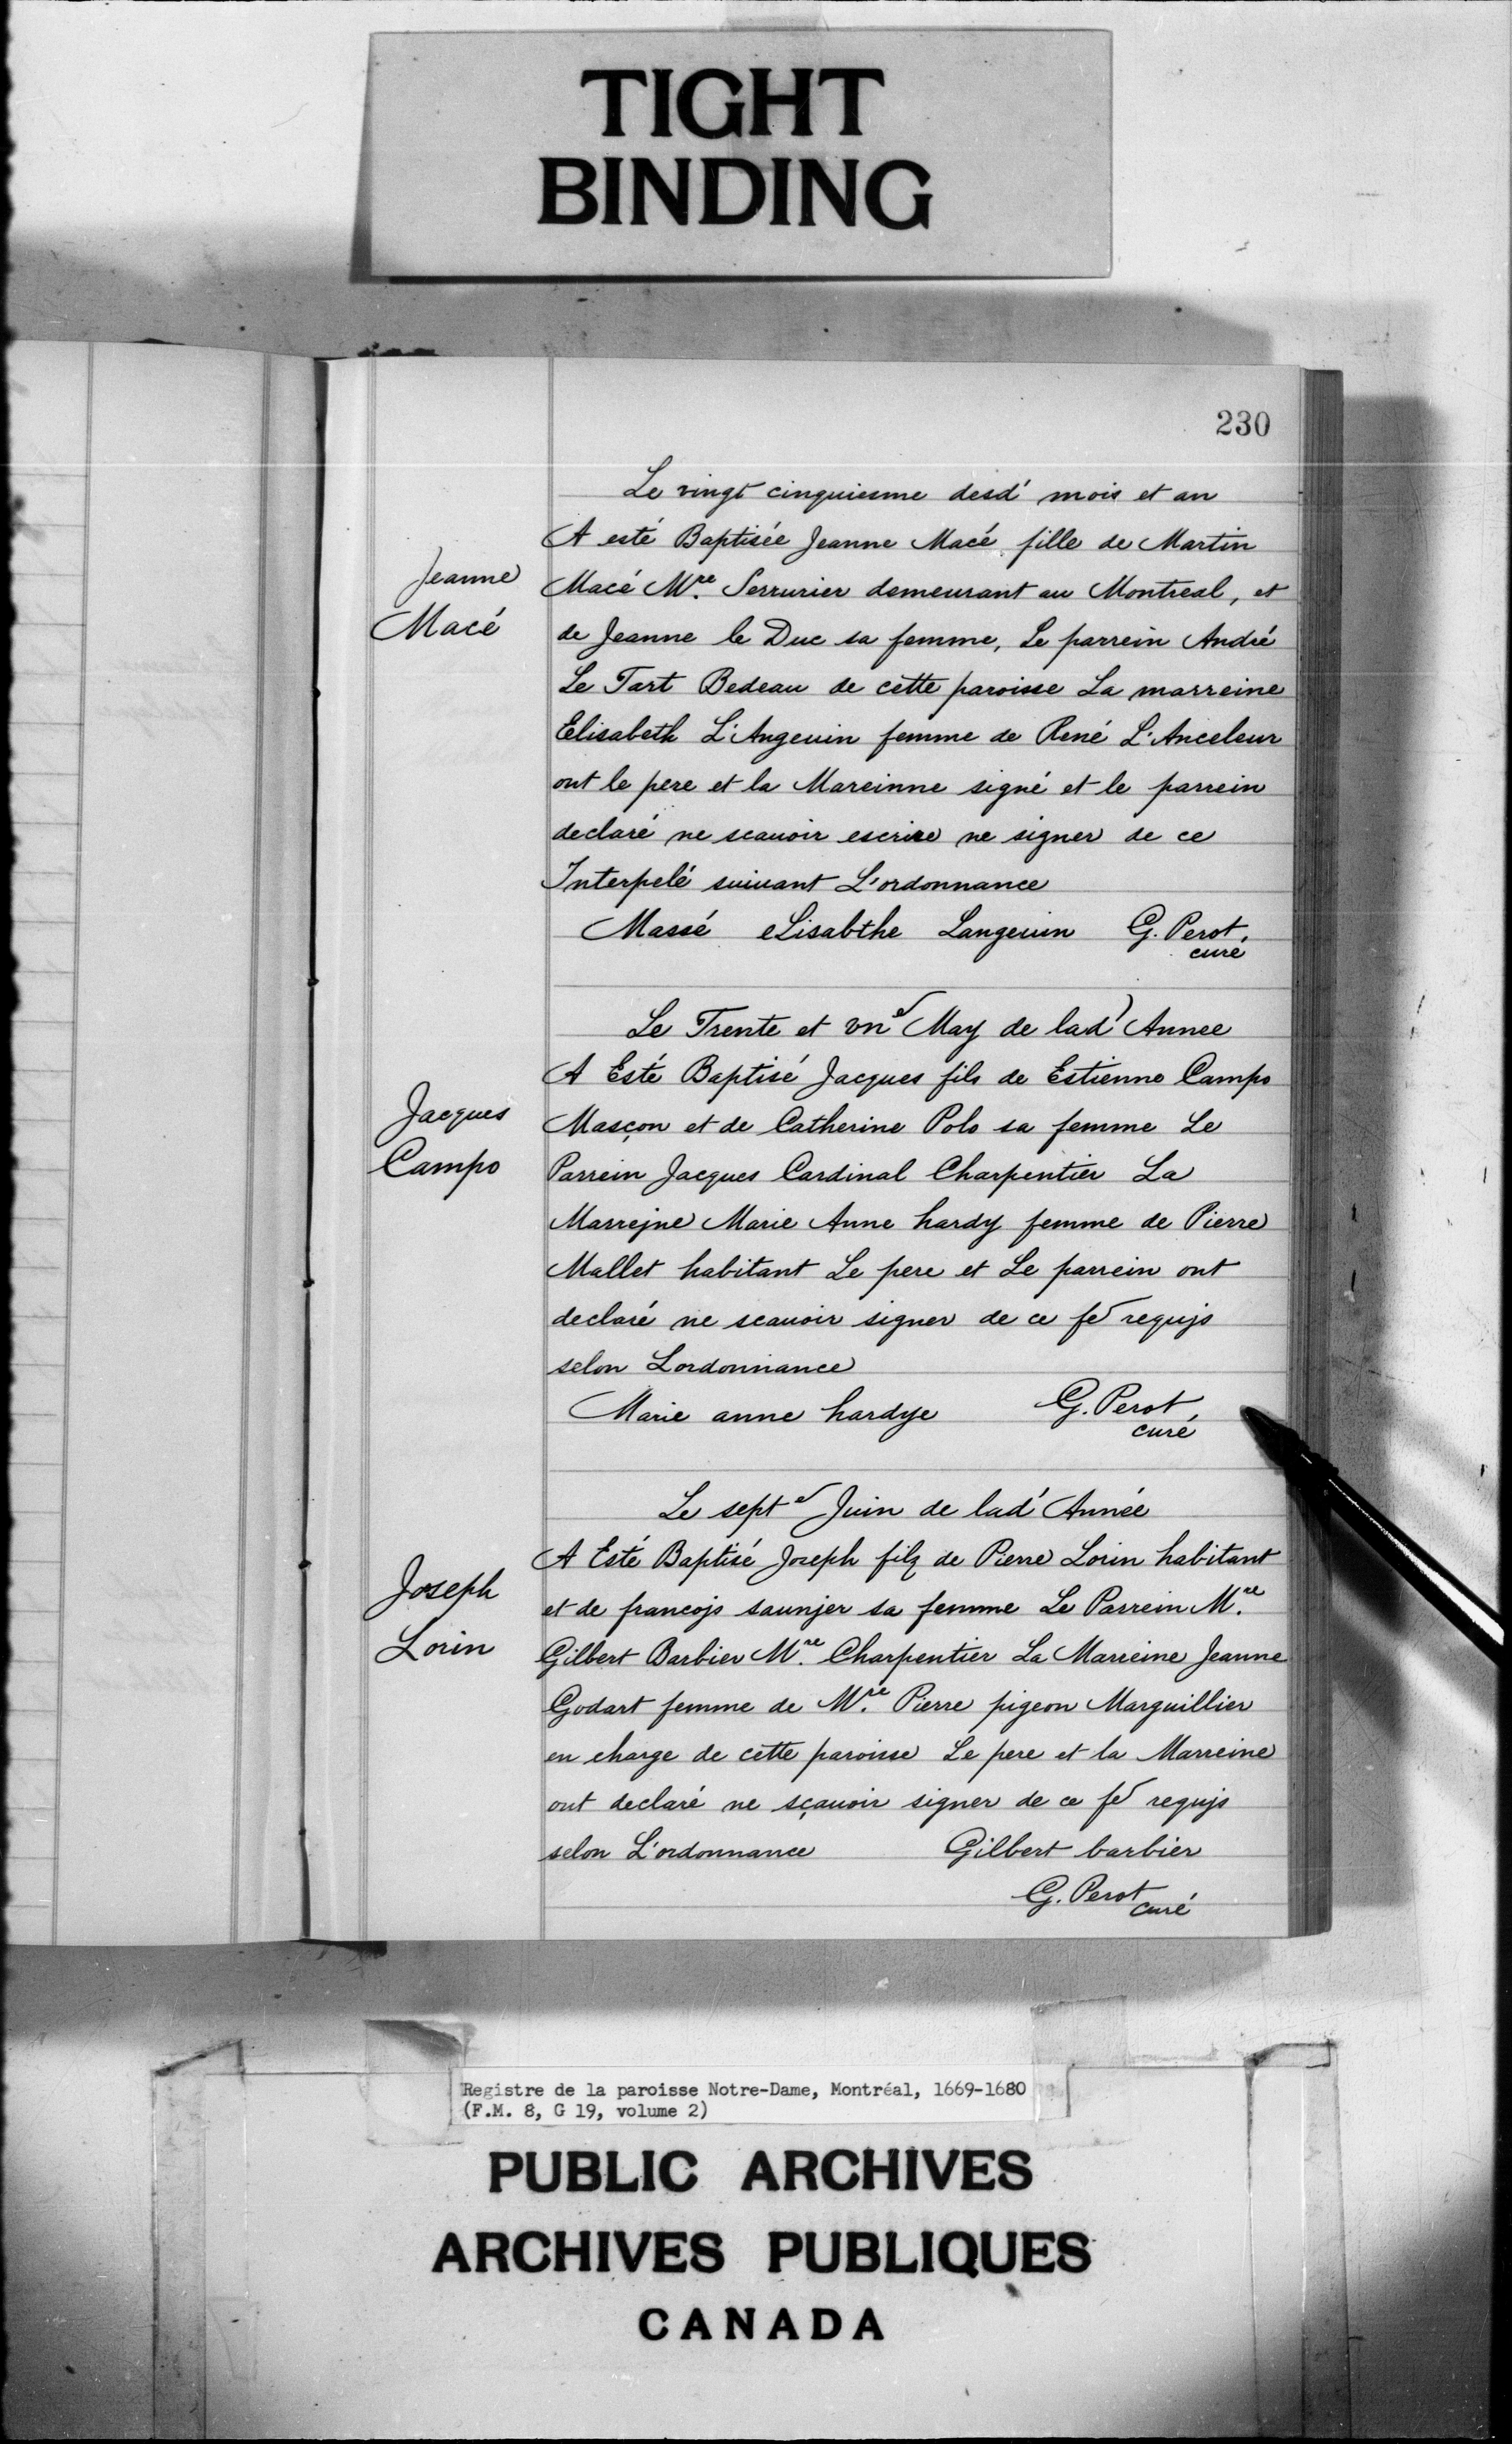 TIGHT
BINDING
230
Le vingt cinquiesme desd' mois et an
A esté Baptisée Jeanne Macé fille de Martin
Jeanne
Macé
Macé M.re Serrurier demeurant au Montreal, et
de Jeanne le Duc sa femme, Le parrein André
Le Tart Bedeau de cette paroisse La marreine
Elisabeth L'Angeuin femme de René L'Anceleur
ont le pere et la Mareinne signé et le parrein
declaré ne scauoir escrire ne signer de ce
Interpelé suiuant L'ordonnance
Massé eLisabthe Langeuin G. Perot,
curé
Le Trente et vn e May de lad' Annee
A Esté Baptisé Jacques fils de Estienne Campo
Jacques
Campo
Masçon et de Catherine Polo sa femme Le
Parrein Jacques Cardinal Charpentier La
Marrejne Marie Anne hardy femme de Pierre
Mallet habitant Le pere et Le parrein ont
declaré ne scauoir signer de ce fe requjs
selon Lordonnance
Marie anne hardye G. Perot,
curé
Le sept e Juin de lad' Année
A Esté Baptisé Joseph filz de Pierre Lorin habitant
Joseph
Lorin
et de francojs saunjer sa femme Le Parrein M.re
Gilbert Barbier M.re Charpentier La Marreine Jeanne
Godart femme de M.re Pierre pigeon Marguillier
en charge de cette paroisse Le pere et la Marreine
ont declaré ne sçauoir signer de ce fe requjs
selon L'ordonnance Gilbert barbier
G. Perot
curé
Registre de la paroisse Notre-Dame, Montréal, 1669-1680
(F.M. 8, G 19, volume 2)
PUBLIC ARCHIVES
ARCHIVES PUBLIQUES
CANADA